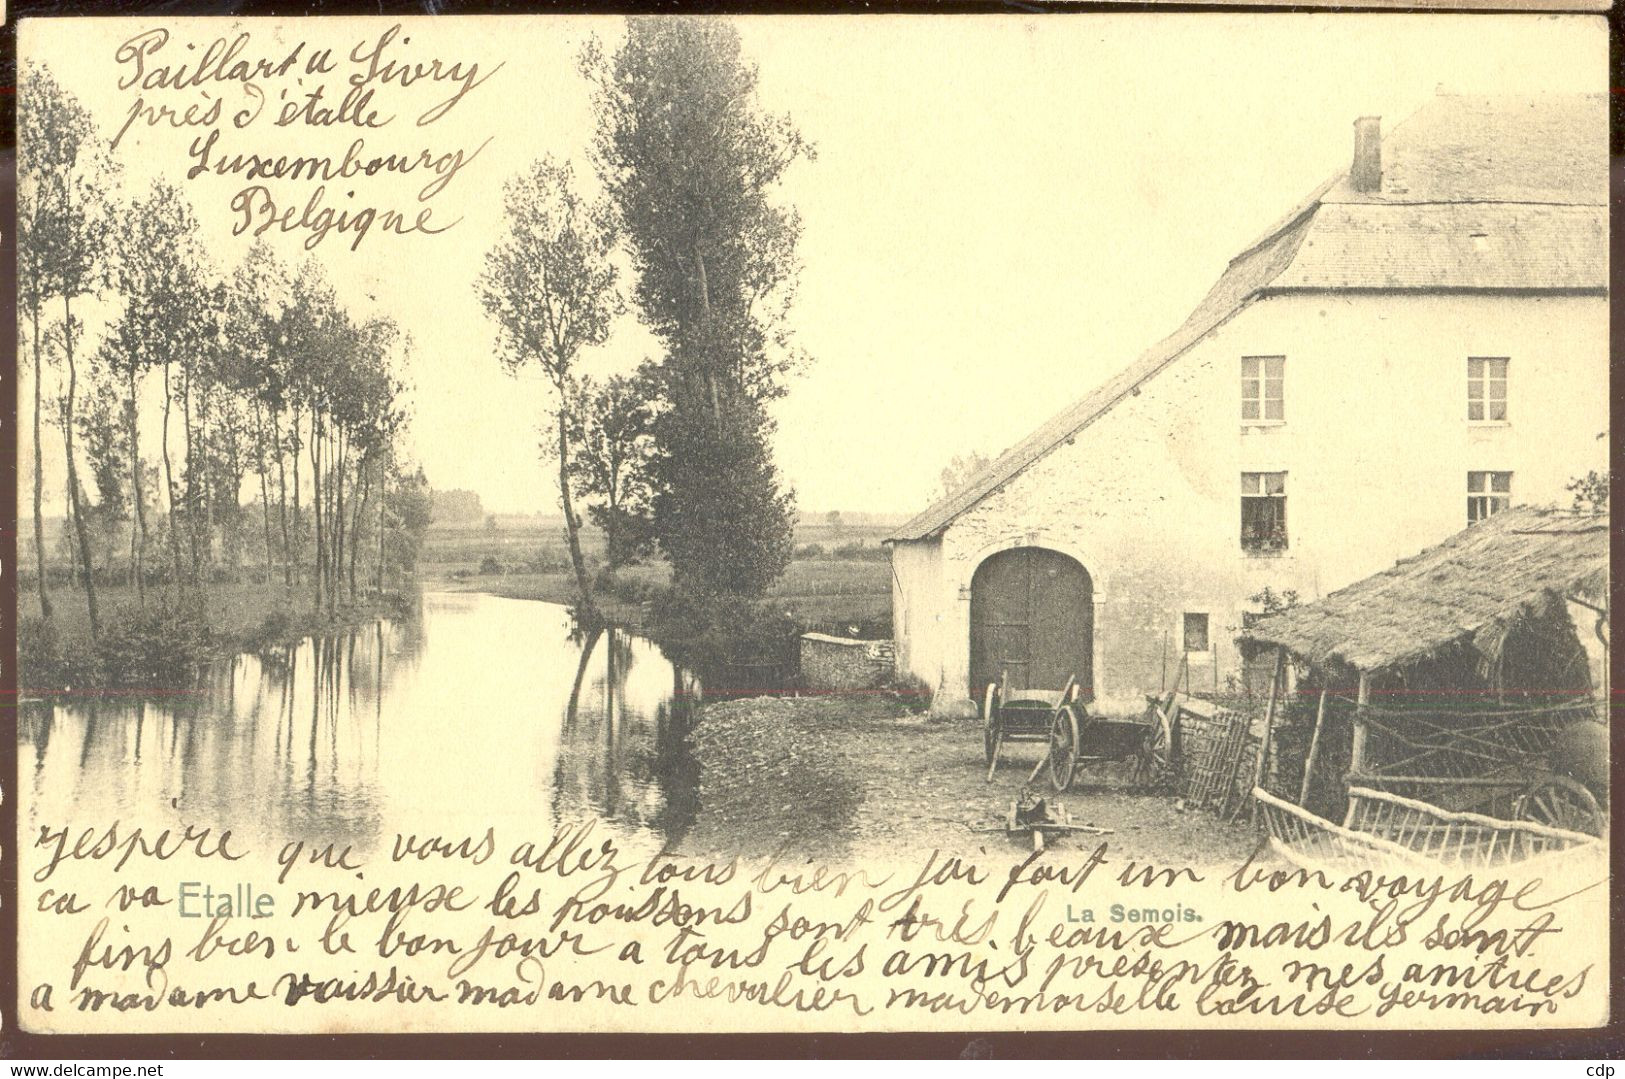 Paillart a Sivry
près d'étalle
Luxembourg
Belgique
jespère que vous allez tous bien jai fait un bon voyage
ca va mieuxe les poissons sont très beauxe mais ils sont
Etalle
La Semois.
fins bien le bonjour a tous les amis présentez mes amitiées
a madame vaissier madame chevalier mademoiselle Louise Germain
www.delcampe.net
cdp